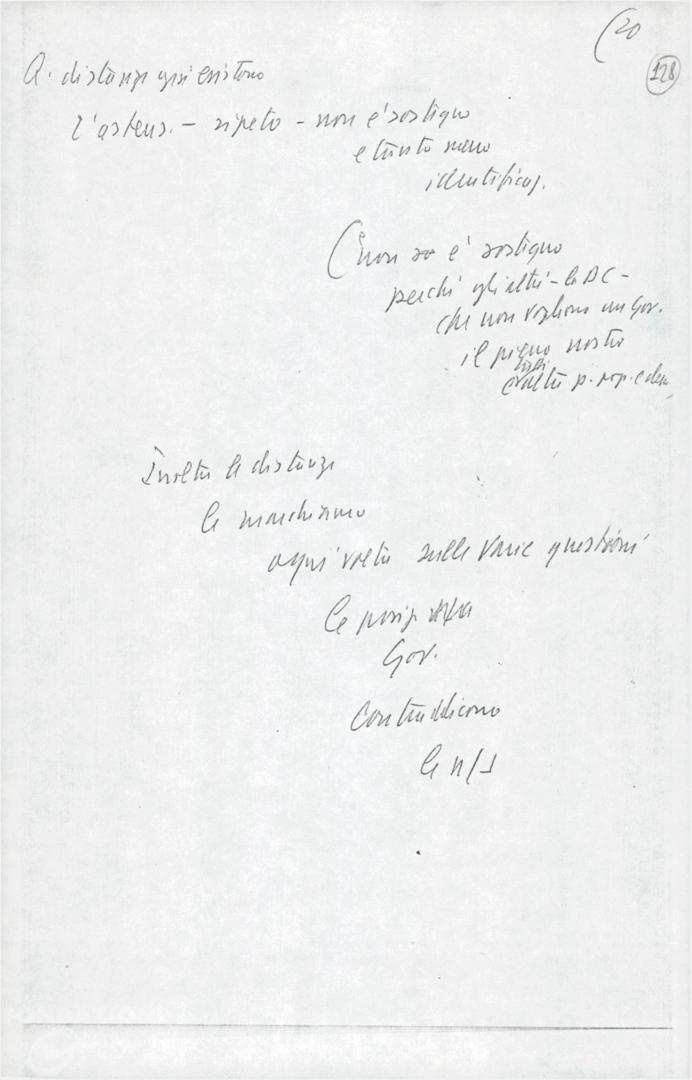 (20
128
Q. distanze già esistono
l'astens. – ripeto – non è sostegno
e tanto meno
identificaz.
(non è sostegno
perché gli altri – la DC –
che non vogliono un Gov.
il pieno nostro
e altri p.
Inoltre le distanze
le marchiamo
ogni volta sulle varie questioni
le posiz.
Gov.
contraddicono
le n/s